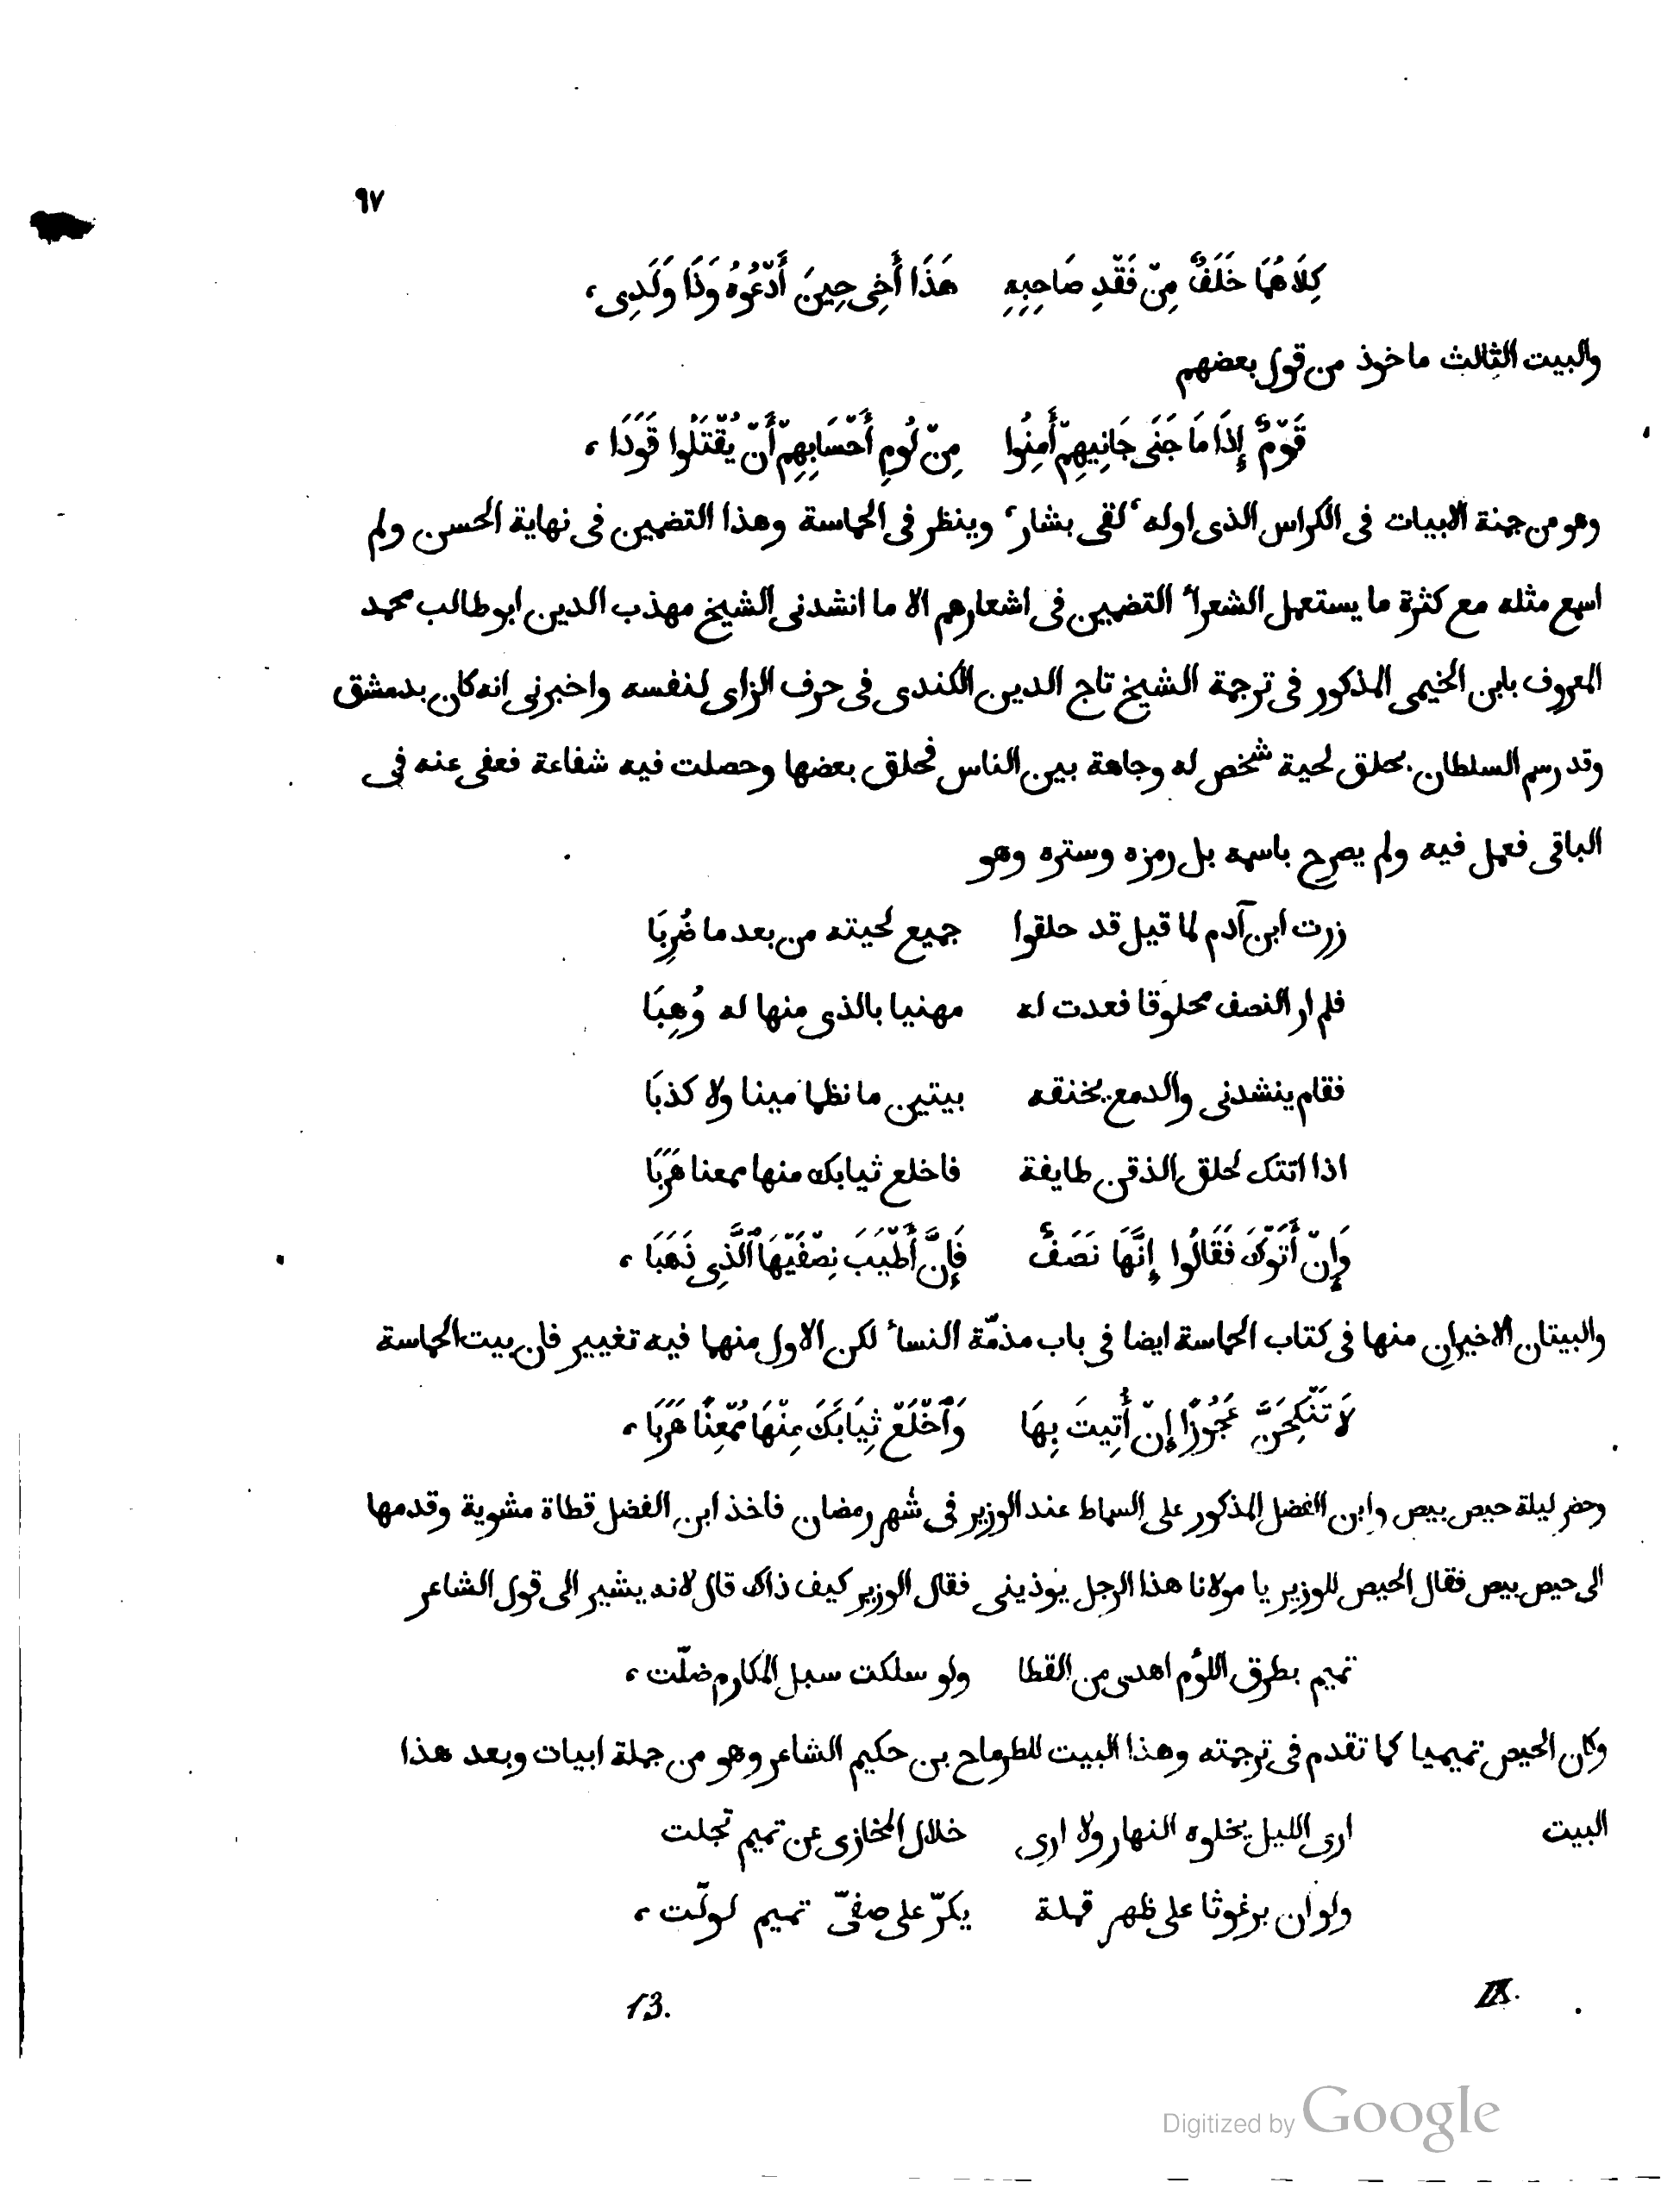 ٩٧
كِلَاهُمَا خَلَفٌ مِنْ فَقْدِ صَاحِبِهِ هَذَا أَخِى حِينَ أَدْعُوهُ وَذَا وَلَدِى،
والبيت الثالث ماخوذ من قول بعضهم
قَوْمٌ إِذَا مَا جَنَى جَانِيهِمْ أَمِنُوا مِنْ لُومِ أَحْسَابِهِمْ أَنْ يُقْتَلُوا قَوَدَا،
وهو من جهنة الابيات فى الكراس الذى اوله، لقى بشار، وينظر فى الحماسة وهذا التضمين فى نهاية الحسن ولم
اسمع مثله مع كثرة ما يستعمل الشعراء التضمين فى اشعارهم الا ما انشدنى الشيخ مهذب الدين ابو طالب محمد
المعروف بابن الخيمى المذكور فى ترجمة الشيخ تاج الدين الكندى فى حرف الزاى لنفسه واخبرنى انه كان بدمشق
وقد رسم السلطان بحلق لحية شخص له وجاهة بين الناس فحلق بعضها وحصلت فيه شفاعة فعفى عنه فى
الباقى فعمل فيه ولم يصرح باسمه بل رمزه وستره وهو
زرت ابن آدم لما قيل قد حلقوا جميع لحيته من بعد ما ضُرِبَا
فلم ار النصف محلوقا فعدت له مهنيا بالذى منها له وُهِبَا
فقام ينشدنى والدمع يخنقه بيتين ما نظما مينا ولا كذبَا
اذا اتتك لحلق الذقن طايفة فاخلع ثيابك منها ممعنا هَرَبَا
وَإِنْ أَتَوْكَ فَقَالُوا إِنَّهَا نَصَفٌ فَإِنَّ أَطْيَبَ نِصْفَيْهَا ٱلَّذِى ذَهَبَا،
والبيتان الاخيران منها فى كتاب الحماسة ايضا فى باب مذمّة النساء لكن الاول منهما فيه تغيير فان بيت الحماسة
لَا تَنْكِحَنَّ عَجُوزًا إِنْ أُتِيتَ بِهَا وَٱخْلَعْ ثِيَابَكَ مِنْهَا مُمْعِنًا هَرَبَا،
وحضر ليلة حيص بيص وابن الفضل المذكور على السماط عند الوزير فى شهر رمضان فاخذ ابن الفضل قطاة مشوية وقدمها
الى حيص بيص فقال الحيص للوزير يا مولانا هذا الرجل يوذينى فقال الوزير كيف ذاك قال لانه يشير الى قول الشاعر
تميم بطرق اللؤم اهدى من القطا ولو سلكت سبل المكارم ضلّت،
وكان الحيص تميميا كما تقدم فى ترجمته وهذا البيت للطرماح بن حكيم الشاعر وهو من جملة ابيات وبعد هذا
البيت ارى الليل يخلوه النهار ولا ارى خلال المخازى عن تميم تجلت
ولو ان برغوثا على ظهر قملة يكرّ على صفىّ تميم لولّت،
IX. 13.
Digitized by Google